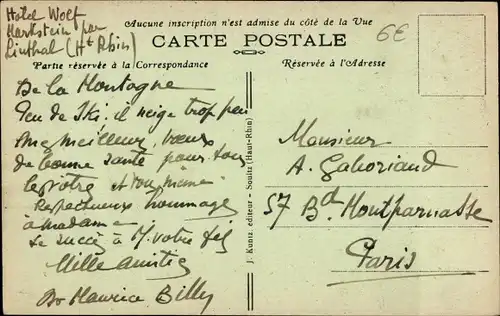 Hôtel Wolf
Markstein par
Linthal (Ht Rhin)
Aucune inscription n'est admise du côté de la Vue
6€
CARTE POSTALE
Partie réservée à la Correspondance
Réservée à l'Adresse
De la Montagne
Peu de Ski, il neige trop peu
mes meilleurs vœux
de bonne santé pour tous
les vôtres et vous même
Respectueux hommages
à madame
le succès à M. votre fils
Mille amitiés
Dr Maurice Billy
J. Kuntz, editeur - Soultz (Haut-Rhin)
Monsieur
A. Gaboriaud
57 Bd Montparnasse
Paris